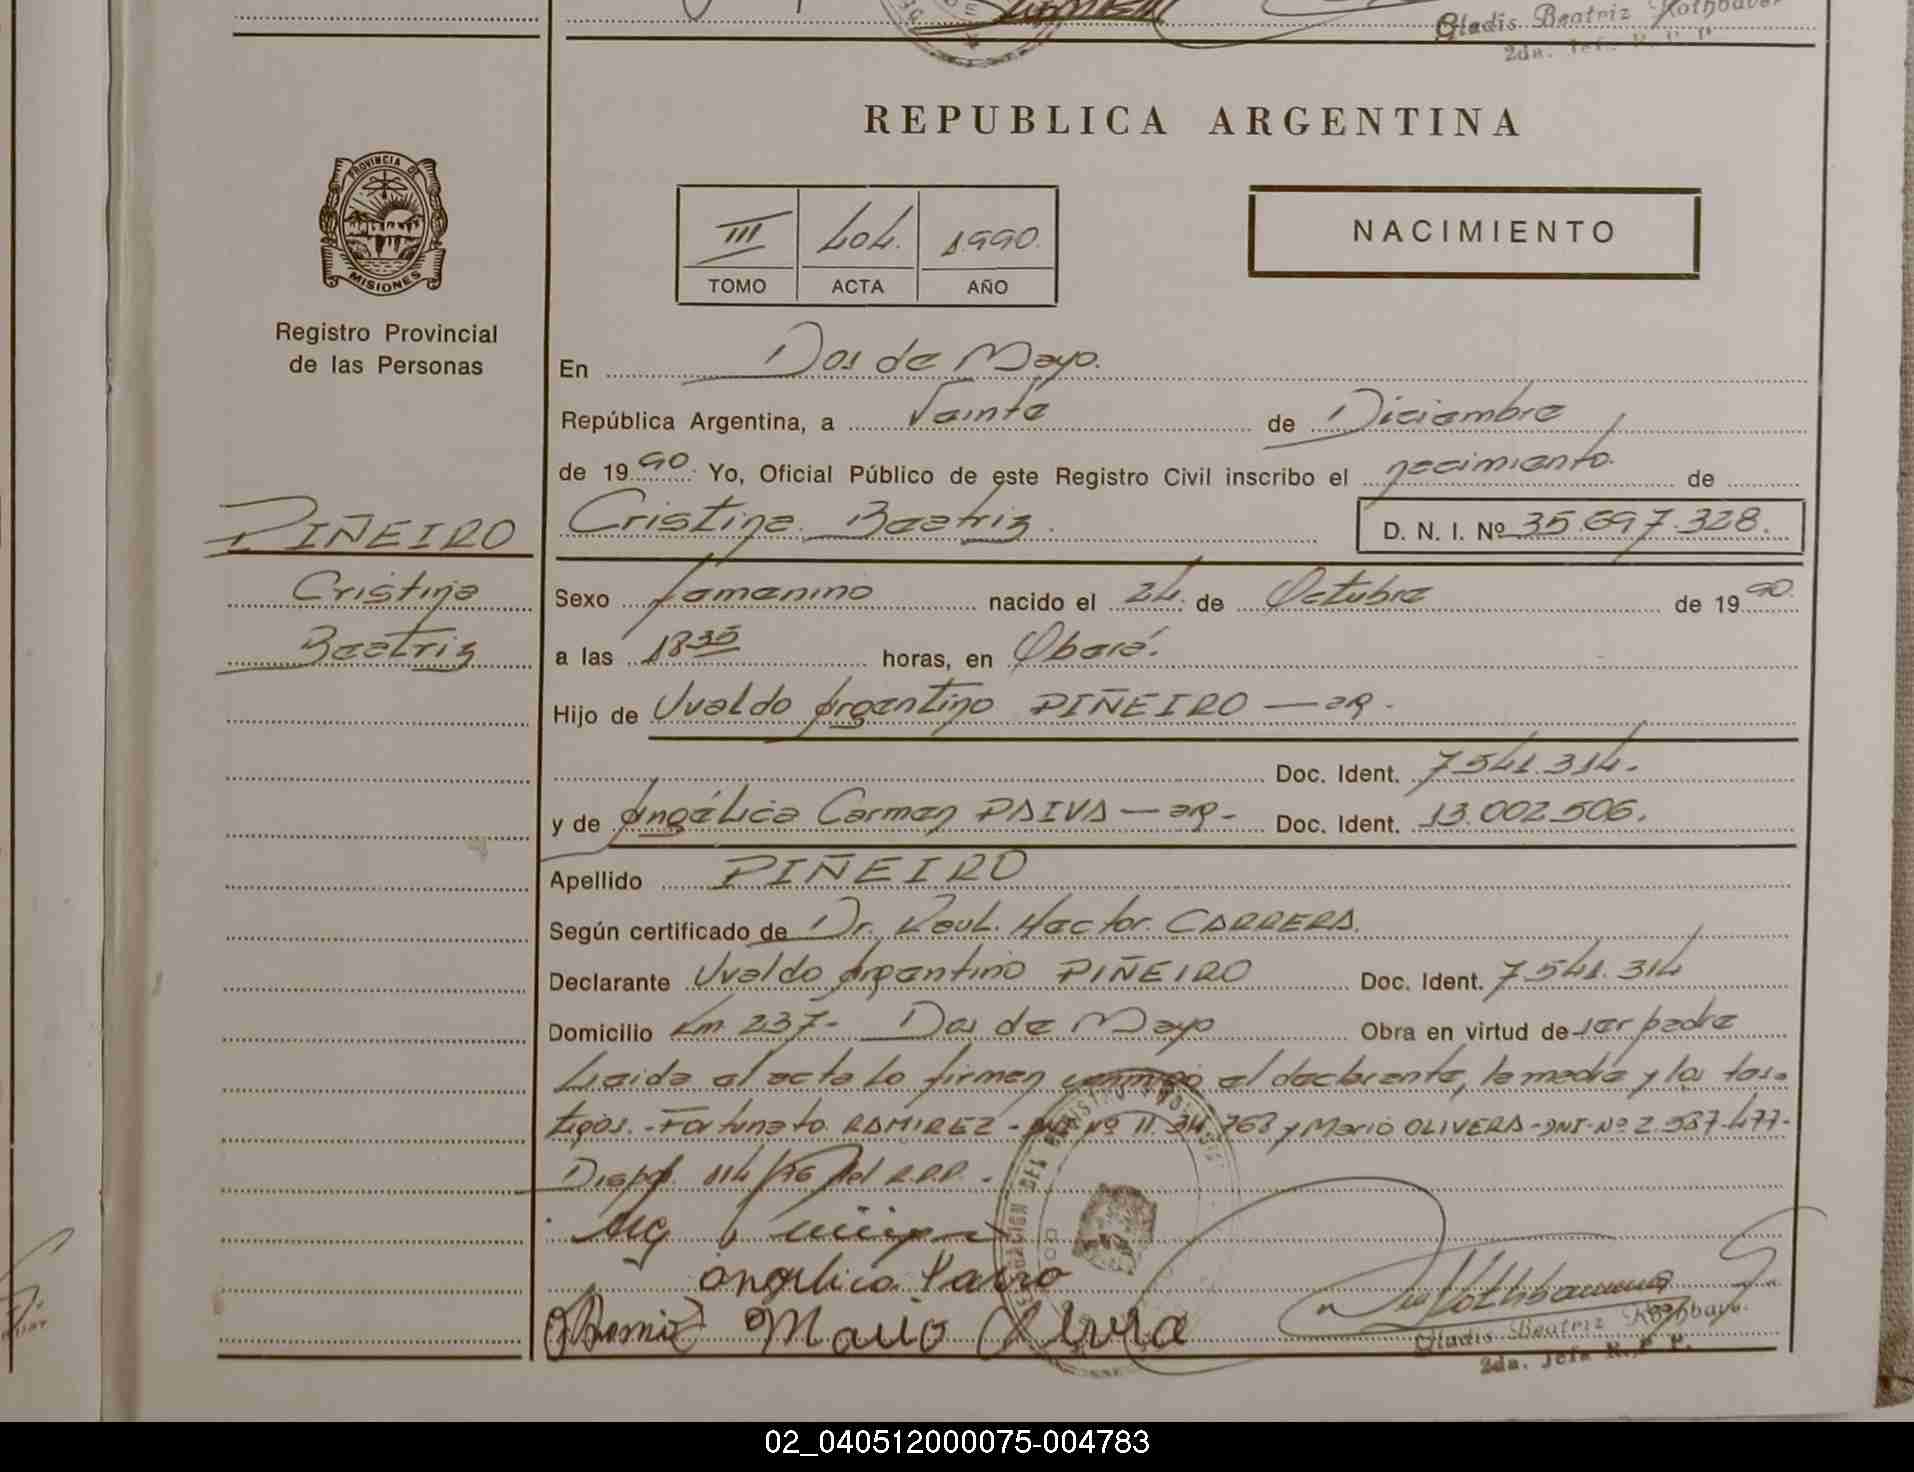 Gladis Beatriz Rothbaver
2da. Jefa R. P. P.
REPUBLICA ARGENTINA
PROVINCIA DE
MISIONES
Registro Provincial
de las Personas
III 404. 1990.
TOMO ACTA AÑO
NACIMIENTO
En Dos de Mayo.
República Argentina, a Veinte de Diciembre
de 1990. Yo, Oficial Público de este Registro Civil inscribo el nacimiento. de
PIÑEIRO
Cristina Beatriz
Cristina Beatriz. D. N. I. Nº 35.697.328.
Sexo femenino nacido el 24. de Octubre de 1990.
a las 18 35 horas, en Oberá.
Hijo de Uvaldo Argentino PIÑEIRO — ar.
Doc. Ident. 7.541.314.
y de Angélica Carmen PAIVA — ar. Doc. Ident. 13.002.506.
Apellido PIÑEIRO
Según certificado de Dr. Raul. Hector. CARRERA.
Declarante Uvaldo Argentino PIÑEIRO Doc. Ident. 7.541.314
Domicilio Km 237- Dos de Mayo Obra en virtud de ser padre
Leida el acta lo firman conmigo el declarante, la madre y los tes-
tigos. - Fortunato RAMIREZ - DNI Nº 11. 768 y Mario OLIVERA - DNI - Nº 2.587.477-
del R.P.P. -
Angelica
Mario
Gladis Beatriz Rothbaver
2da. Jefa R. P. P.
02_040512000075-004783